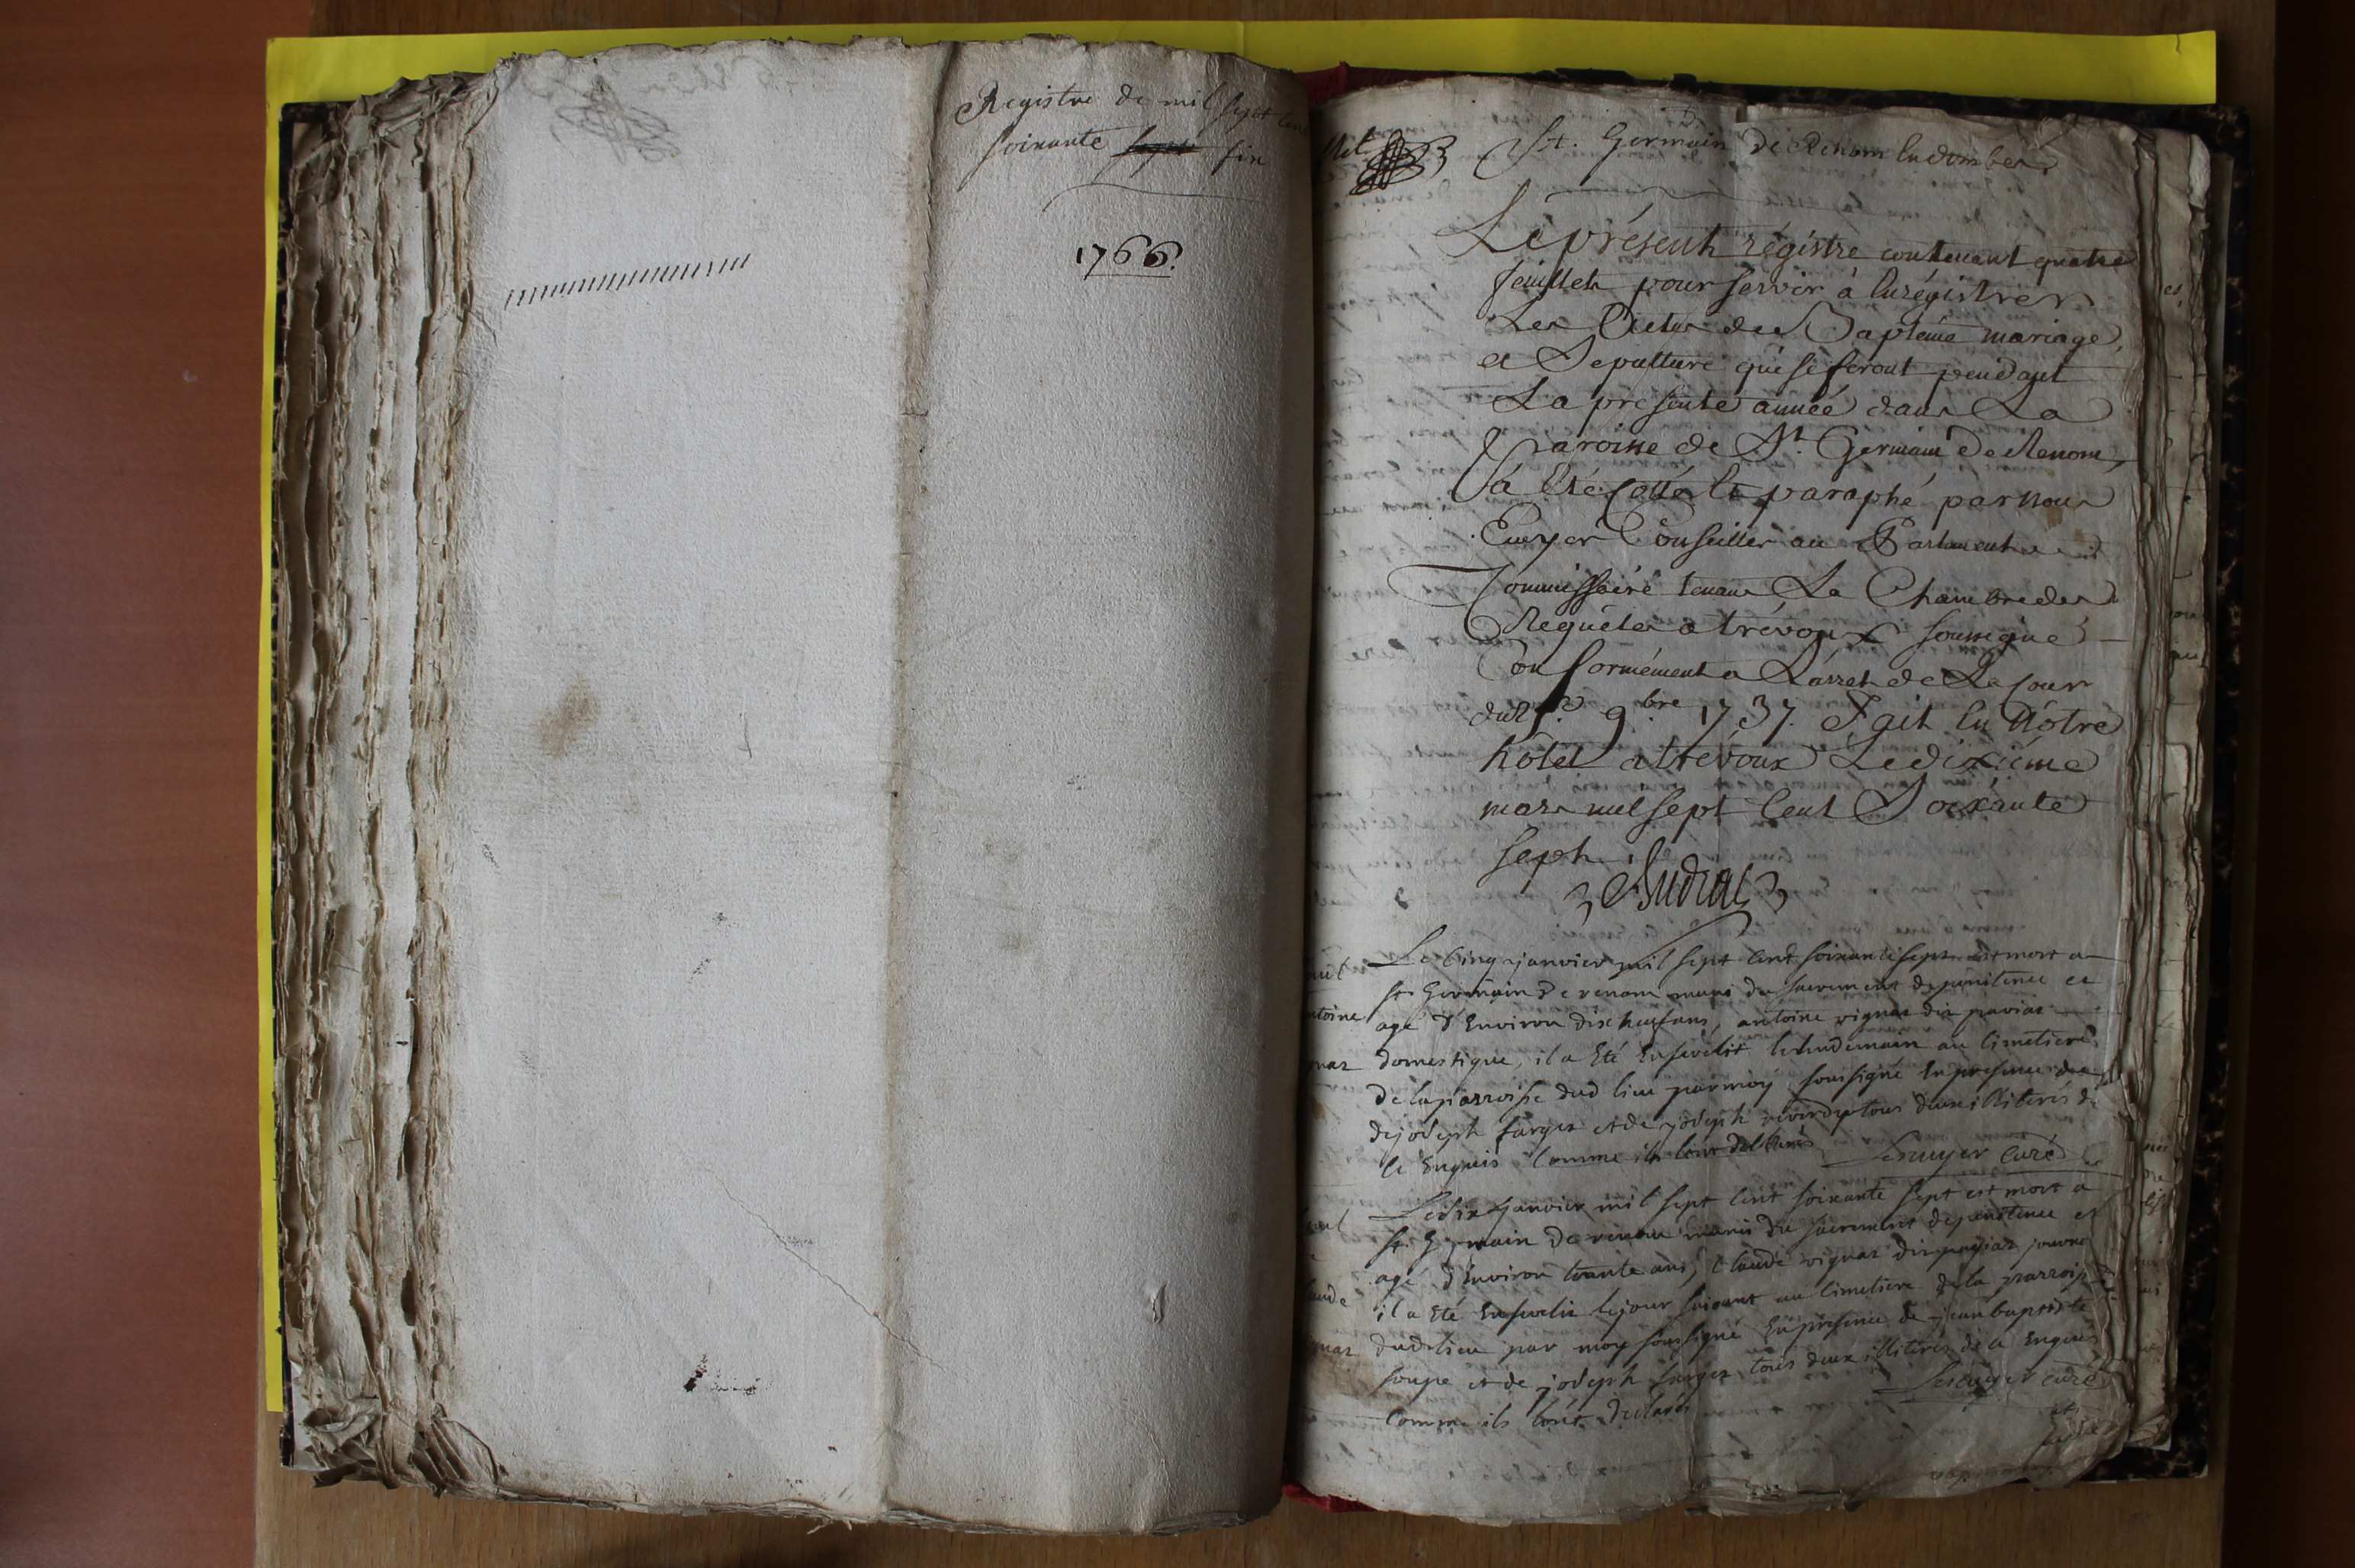 Registre de mil sept cent
soixante sept six
1766.
St. Germain De Renom en dombes
Le présent régistre contenant quatre
feuillets pour servir à enrégistrer
Les Actes de Baptême mariage,
et Sepulture qui se feront pendant
La présente année dans La
Paroisse de St. Germain De Renom,
a été cotté et paraphé par Nous
Ecuyer Conseiller au Parlement
Commissaire tenant La Chambre des
Requêtes a trévoux soussigné
Conformément a L'arret de La Cour
du 9.bre 1737. Fait en Nôtre
hôtel a trévoux Le dixiéme
mars mil sept Cent Soixante
sept.
Le Cinq janvier mil sept cent soixante sept est mort a
st Germain De renom muni du sacrement de penitence et
agé d'Environ dix huit ans, antoine vignat dit
domestique, il a Eté Ensevelit le lendemain au Cimetiere
De la parroisse dud lieu par moy soussigné En presence
de joseph farges et de joseph tous deux illiterés de
ce Enquis Comme ils l'ont déclarés Lescuyer curé
Le dix janvier mil sept cent soixante sept est mort a
st Germain De renom muni du sacrement de penitence et
agé d'Environ trente ans, Claude vignat dit
il a Eté Ensevelit le jour suivant au Cimetiere de la parroisse
dud lieu par moy soussigné En presence de jean baptiste
soupe et de joseph farges tous deux illiterés de ce Enquis
Comme ils l'ont déclarés Lescuyer curé